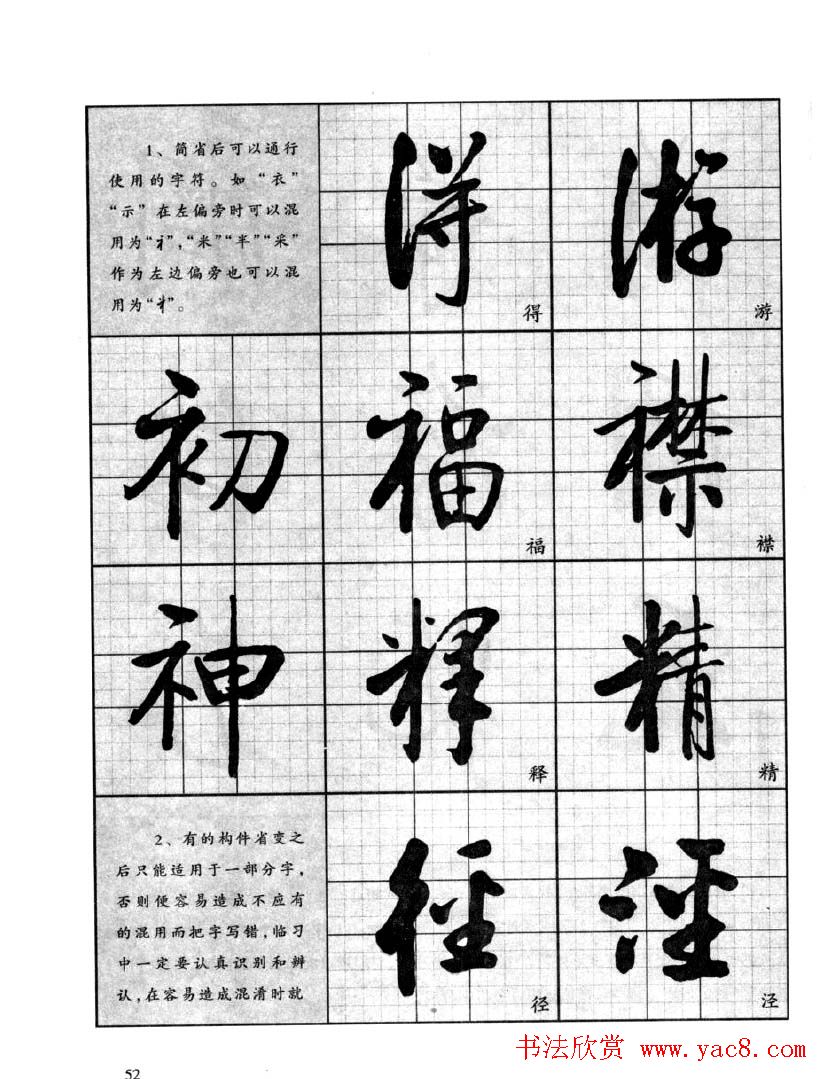 1、简省后可以通行
使用的字符。如“衣”
“示”在左偏旁时可以混
用为“礻”,“米”“半”“采”
作为左边偏旁也可以混
用为“”。
得
游
初
福
福
襟
襟
神
释
释
精
精
2、有的构件省变之
后只能适用于一部分字,
否则便容易造成不应有
的混用而把字写错,临习
中一定要认真识别和辨
认,在容易造成混淆时就
径
径
泾
泾
52
书法欣赏 www.yac8.com